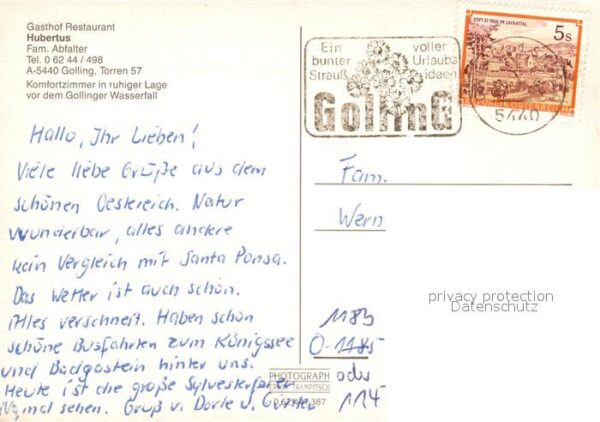 Gasthof Restaurant
Hubertus
Fam. Abfalter
Tel. 0 62 44 / 498
A-5440 Golling, Torren 57
Komfortzimmer in ruhiger Lage
vor dem Gollinger Wasserfall
Ein voller
bunter Urlaubs
Strauß ideen
Golling
5440
STIFT ST. PAUL IM LAVANTTAL
5s
REPUBLIK ÖSTERREICH
Hallo, Ihr Lieben!
Viele liebe Grüße aus dem
schönen Oesterreich. Natur
wunderbar, alles andere
kein Vergleich mit Santa Ponsa.
Das Wetter ist auch schön.
Alles verschneit. Haben schon
schöne Busfahrten zum Königssee
und Badgastein hinter uns.
Heute ist die große Sylvesterfeier
mal sehen. Gruß v. Dorle u. Günter
Fam.
Wern
privacy protection
Datenschutz
1183
0-1185
oder
114
PHOTOGRAPH
TRAMPITSCH
387